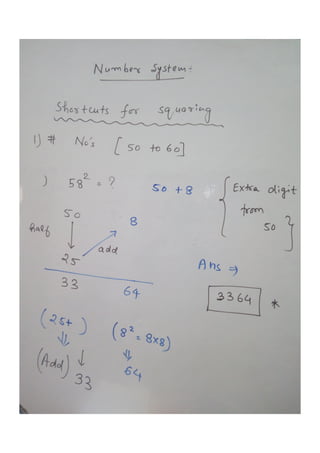 Number System:
Shortcuts for squaring
1) # No's [50 to 60]
) 58² = ?
50 + 8
{ Extra digit from 50 }
50
half
8
25
add
33 64
Ans ⇒
3364 *
(25+ ) (8² = 8x8)
(Add) ↓ 64
33